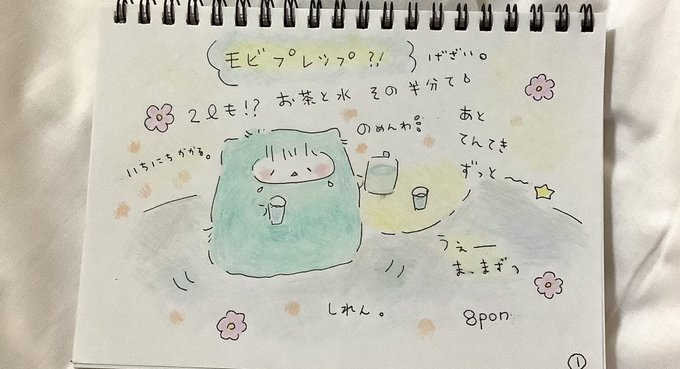 モビプレップ?!
げざい。
2ℓも!? お茶と水 その半分ても
のめんわ!!
あと
てんてき
ずっと〜〜
いちにちかかる。
うぇー
ま、まずっ
しれん。
8pon
1